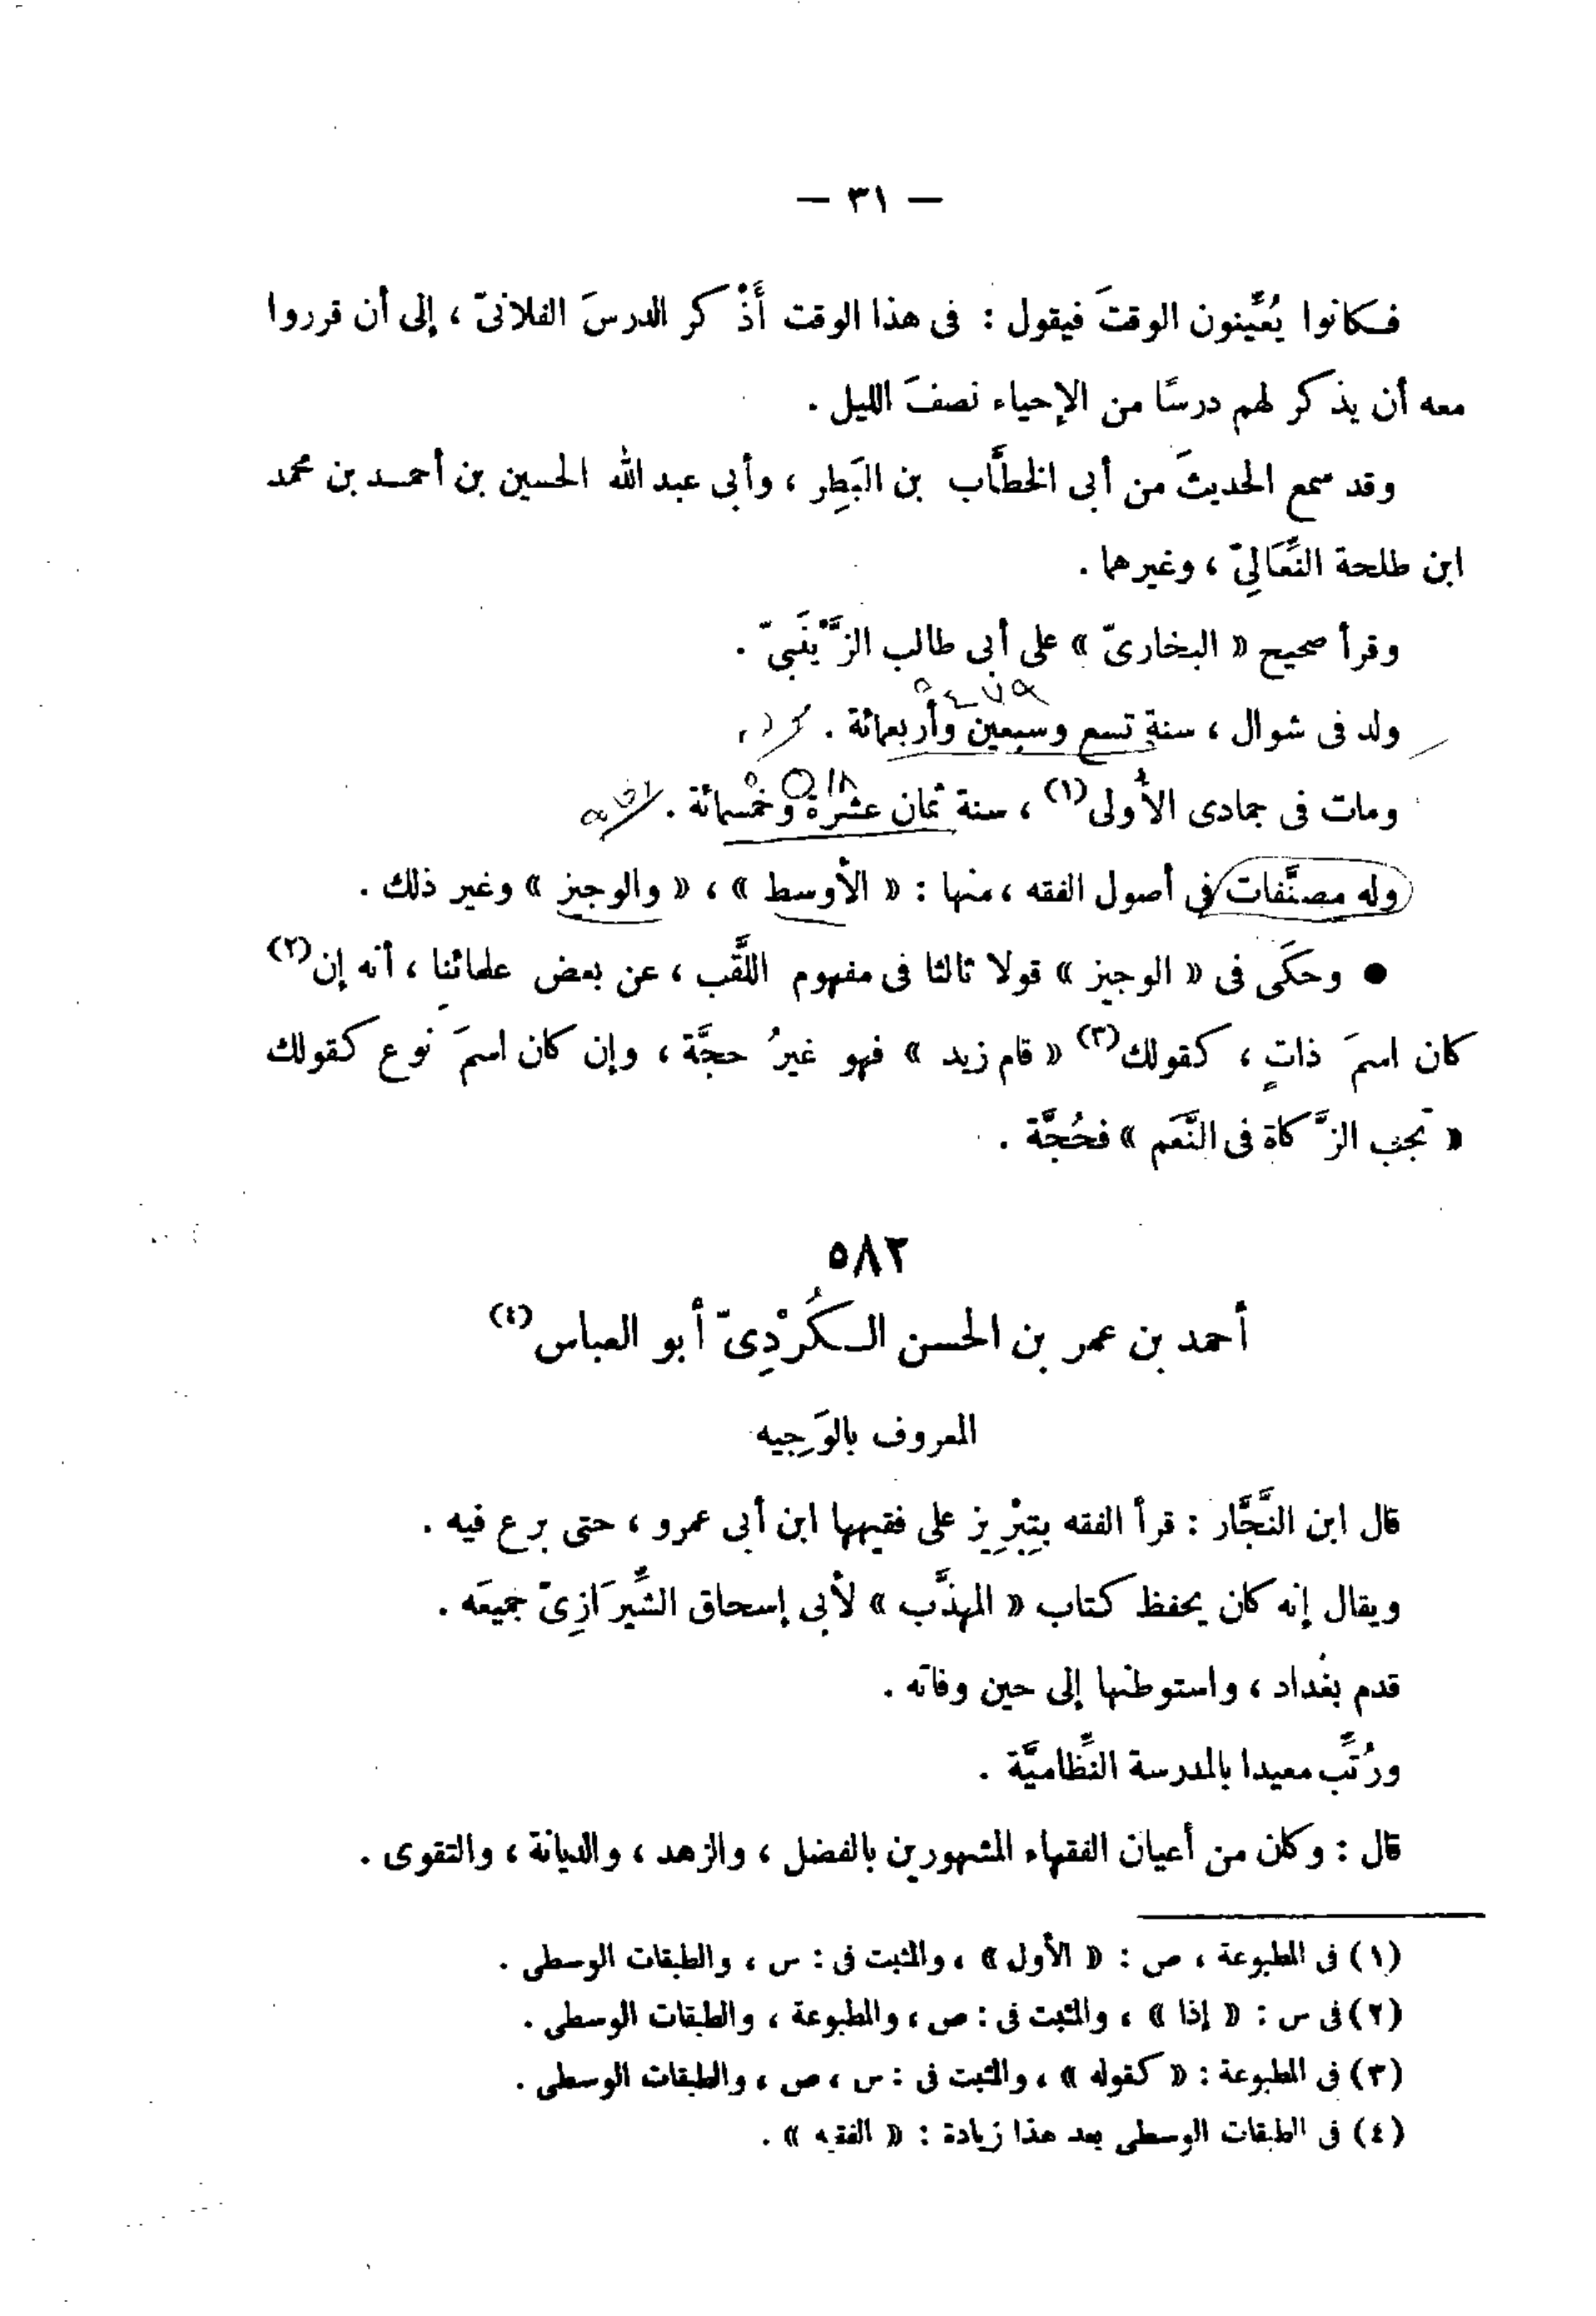 — ٣١ —
فكانوا يُعَيِّنون الوقتَ فيقول : فى هذا الوقت أَذْكر الدرسَ الفلانىّ ، إلى أن قرروا
معه أن يذكر لهم درسًا من الإحياء نصفَ الليل .
وقد سمع الحديثَ من أبى الخطَّاب بن البَطِر ، وأبى عبد الله الحسين بن أحمد بن محمد
ابن طلحة النِّعَالِىّ ، وغيرهما .
وقرأ صحيح « البخارىّ » على أبى طالب الزَّيْنَبىّ .
ولد فى شوال ، سنة تسع وسبعين وأربعمائة .
ومات فى جمادى الأولى(١) ، سنة ثمان عشرة وخمسمائة .
٥١٨
وله مصنَّفات فى أصول الفقه ، منها : « الأوسط » ، « والوجيز » وغير ذلك .
● وحكَى فى « الوجيز » قولا ثالثا فى مفهوم اللَّقَب ، عن بعض علمائنا ، أنه إن(٢)
كان اسمَ ذاتٍ ، كقولك(٣) « قام زيد » فهو غيرُ حجَّة ، وإن كان اسمَ نوع كقولك
« تجب الزَّكاة فى النَّعَم » فحُجَّة .
٥٨٢
أحمد بن عمر بن الحسن الكُرْدِىّ أبو العباس(٤)
المعروف بالوَجِيه
قال ابن النَّجَّار : قرأ الفقه بتِبْرِيز على فقيهها ابن أبى عمرو ، حتى برع فيه .
ويقال إنه كان يحفظ كتاب « المهذَّب » لأبى إسحاق الشِّيرَازِىّ جميعَه .
قدم بغداد ، واستوطنها إلى حين وفاته .
ورُتِّب معيدا بالمدرسة النِّظاميَّة .
قال : وكان من أعيان الفقهاء المشهورين بالفضل ، والزهد ، والديانة ، والتقوى .
(١) فى المطبوعة ، ص : « الأول » ، والمثبت فى : س ، والطبقات الوسطى .
(٢) فى س : « إذا » ، والمثبت فى : ص ، والمطبوعة ، والطبقات الوسطى .
(٣) فى المطبوعة : « كقوله » ، والمثبت فى : س ، ص ، والطبقات الوسطى .
(٤) فى الطبقات الوسطى بعد هذا زيادة : « الفقيه » .